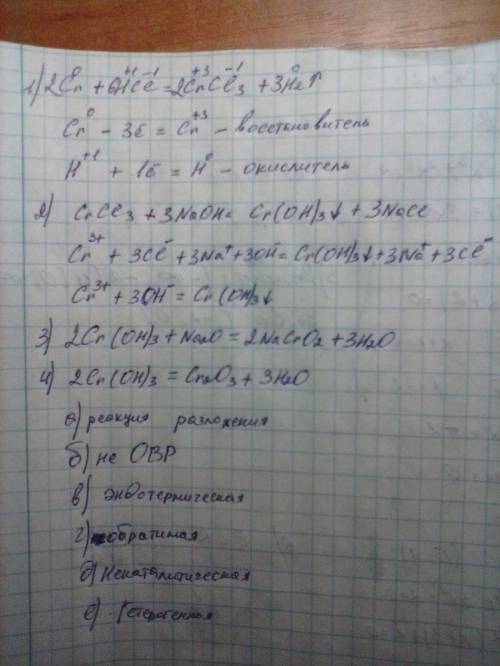 0 +1 -1 +3 -1 0
1) 2Cr + 6HCl = 2CrCl₃ + 3H₂↑
Cr⁰ - 3ē = Cr⁺³ - восстановитель
H⁺¹ + 1ē = H⁰ - окислитель
2) CrCl₃ + 3NaOH = Cr(OH)₃↓ + 3NaCl
Cr³⁺ + 3Cl⁻ + 3Na⁺ + 3OH⁻ = Cr(OH)₃↓ + 3Na⁺ + 3Cl⁻
Cr³⁺ + 3OH⁻ = Cr(OH)₃↓
3) 2Cr(OH)₃ + Na₂O = 2NaCrO₂ + 3H₂O
4) 2Cr(OH)₃ = Cr₂O₃ + 3H₂O
а) реакция разложения
б) не ОВР
в) эндотермическая
г) обратимая
д) Некаталитическая
е) Гетерогенная